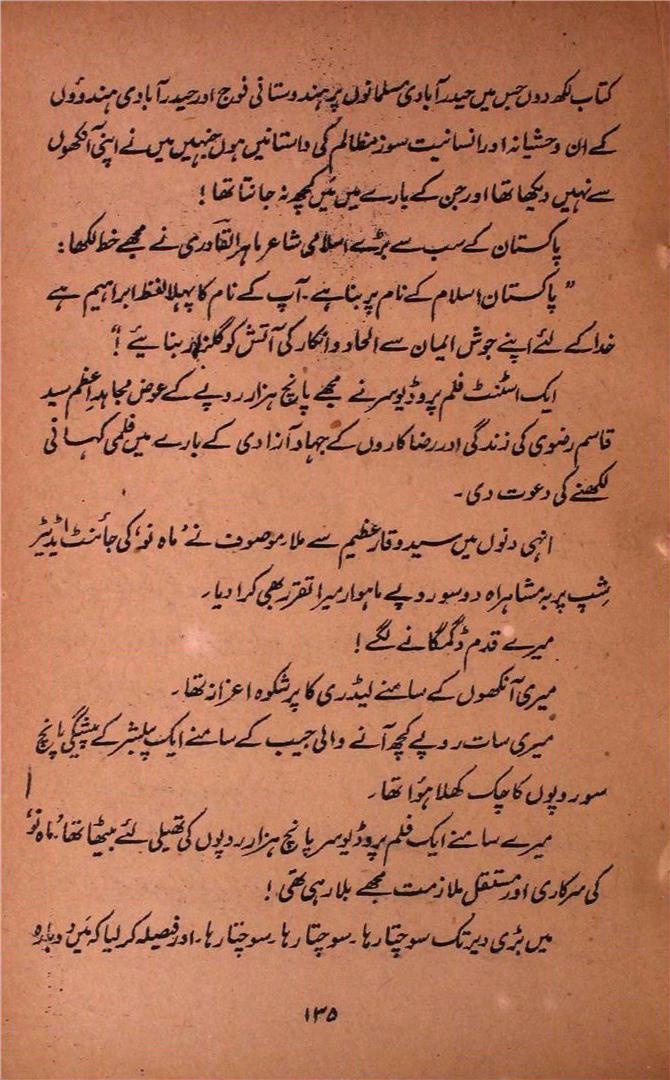 کتاب لکھ دوں جس میں حیدرآبادی مسلمانوں پر ہندوستانی فوج اور حیدرآبادی ہندوؤں
کے ان وحشیانہ اور انسانیت سوز مظالم کی داستانیں ہوں جنہیں میں نے اپنی آنکھوں
سے نہیں دیکھا تھا اور جن کے بارے میں میں کچھ نہ جانتا تھا !
پاکستان کے سب سے بڑے اسلامی شاعر ماہر القادری نے مجھے خط لکھا :
" پاکستان اسلام کے نام پر بنا ہے ۔ آپ کے نام کا پہلا لفظ ابراہیم ہے
خدا کے لئے اپنے جوش ایمان سے الحاد و انکار کی آتش کو گلزار بنایئے !"
ایک اسٹنٹ فلم پروڈیوسر نے مجھے پانچ ہزار روپے کے عوض مجاہدِ اعظم سید
قاسم رضوی کی زندگی اور رضاکاروں کے جہاد آزادی کے بارے میں فلمی کہانی
لکھنے کی دعوت دی ۔
انہی دنوں میں سید وقار عظیم سے ملا۔ موصوف نے 'ماہ نو' کی جائنٹ ایڈیٹر
شِپ پر بہ مشاہراہ دو سو روپے ماہوار میرا تقرر بھی کرا دیا ۔
میرے قدم ڈگمگانے لگے !
میری آنکھوں کے سامنے لیڈری کا پرشکوہ اعزاز تھا ۔
میری سات روپے کچھ آنے والی جیب کے سامنے ایک پبلشر کے پیشگی پانچ
سو روپوں کا چک کھلا ہؤا تھا ۔
میرے سامنے ایک فلم پروڈیوسر پانچ ہزار روپوں کی تھیلی لئے بیٹھا تھا 'ماہ نو'
کی سرکاری اور مستقل ملازمت مجھے بلا رہی تھی !
میں بڑی دیر تک سوچتا رہا ۔ سوچتا رہا ۔ سوچتا رہا ۔ اور فیصلہ کر لیا کہ میں دوبارہ
۱۳۵